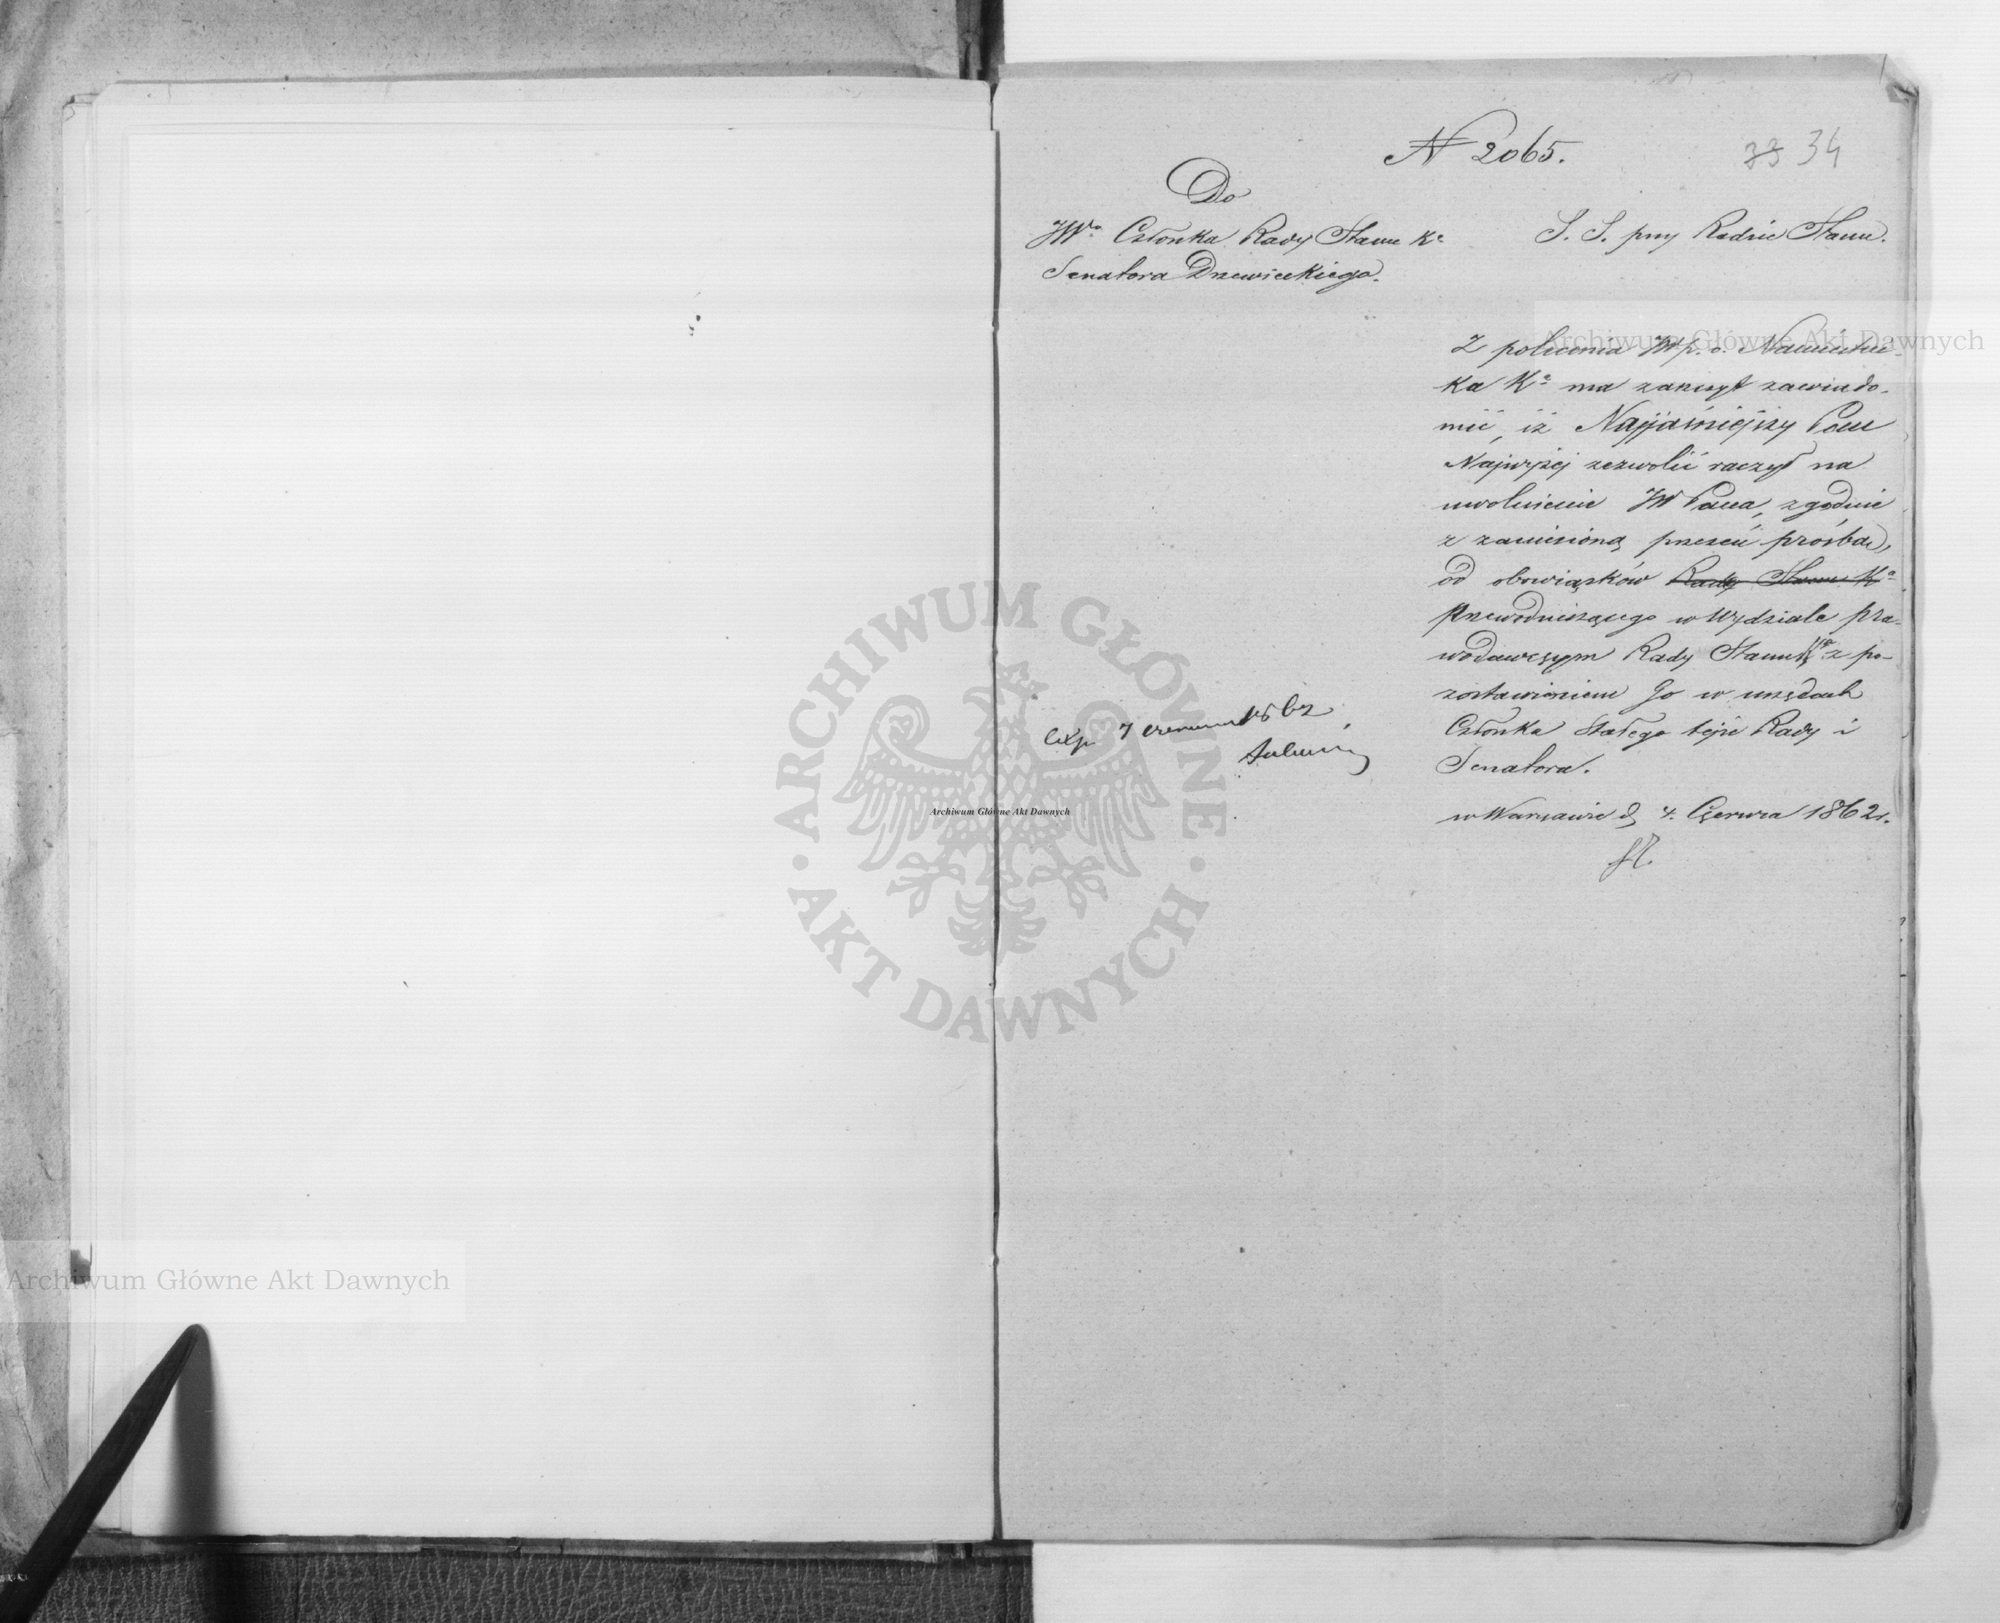 N 2065.
33 34
Do
JW° Członka Rady Stanu K°
Senatora Drzewieckiego.
S. S. przy Radzie Stanu.
Z polecenia JW p. o. Namiestni-
ka K° ma zaszczyt zawiado-
mić, iż Najjaśniejszy Pan
Najwyżej zezwolić raczył na
uwolnienie JW Pana, zgodnie
z zaniesioną przezeń prośbą,
od obowiązków Rady Stanu K°
Przewodniczącego w Wydziale pra-
wodawczym Rady Stanu K° z po-
zostawieniem Go w urzędach
Członka Stałego tejże Rady i
Senatora.
w Warszawie d. 4. Czerwca 1862 r.
exp. 7 czerwca 1862
Archiwum Główne Akt Dawnych
Archiwum Główne Akt Dawnych
Archiwum Główne Akt Dawnych
ARCHIWUM GŁÓWNE
AKT DAWNYCH